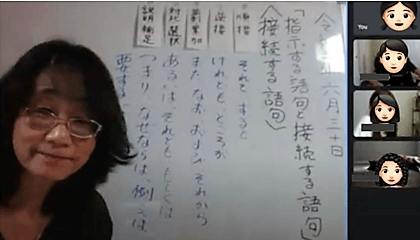 六月三十日
「指示する語句と接続する語句」
〈接続する語句〉
順接
それで すると
逆接
けれども、ところが
累加
また なお および それから
対比 選択
あるいは それとも もしくは
説明 補足
つまり、なぜならば、例えば、
要するに
You